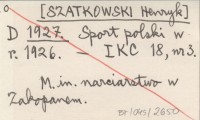 [SZATKOWSKI Henryk]
D 1927. Sport polski w
r. 1926. – IKC 18, nr 3.
M. in. narciarstwo w
Zakopanem.